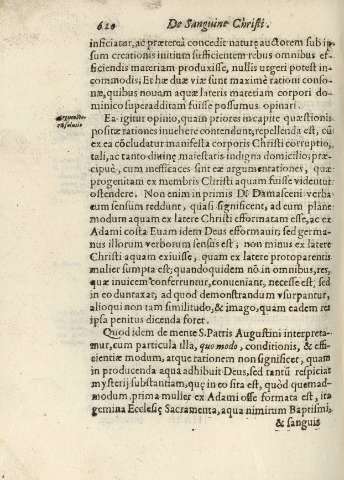 620 De Sanguine Christi.
inficiatur, ac præterea concedit naturę auctorem sub ip
sum creationis initium sufficientem rebus omnibus ef-
ficiendis materiam produxisse, nullis urgeri potest in-
commodis; Et hæ duæ viæ sunt maximè rationi conso-
næ, quibus nouam aquæ lateris materiam corpori do-
minico superadditam fuisse possumus opinari.
Ea igitur opinio, quam priores in capite quæstionis
positæ rationes inuehere contendunt, repellenda est, cū
ex ea cōcludatur manifesta corporis Christi corruptio,
tali, ac tanto diuinę maiestatis indigna domicilio; præ-
cipuè, cum inefficaces sint eæ argumentationes, quæ
progenitam ex membris Christi aquam fuisse videntur
ostendere. Non enim in primis D. Damasceni verba
eum sensum reddunt, quasi significent, ad eum planè
modum aquam ex latere Christi efformatam esse, ac ex
Adami costa Euam idem Deus efformauit; sed germa-
nus illorum verborum sensus est; non minus ex latere
Christi aquam exiuisse, quam ex latere protoparentis
mulier sumpta est; quandoquidem nō in omnibus, res,
quæ inuicem conferuntur, conueniant, necesse est; sed
in eo duntaxat, ad quod demonstrandum vsurpantur,
alioqui non tam similitudo, & imago, quam eadem res
ipsa penitus dicenda foret.
Quod idem de mente S. Patris Augustini interpreta-
mur, cum particula illa, quo modo, conditionis, & effi-
cientiæ modum, atque rationem non significet, quam
in producenda aqua adhibuit Deus, sed tantū respiciat
mysterij substantiam, quę in eo sita est, quòd quemad-
modum prima mulier ex Adami osse formata est, ita
gemina Ecclesię Sacramenta, aqua nimirum Baptismi,
& sanguis